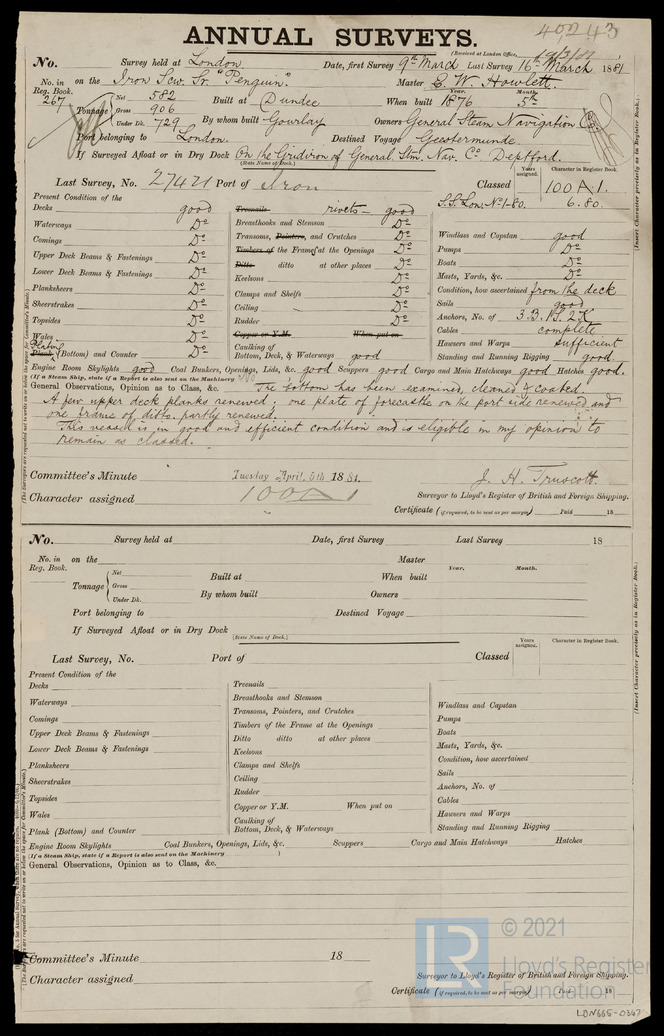 ANNUAL SURVEYS.
40243
(Received at London Office, 19/3/81
No. Survey held at London Date, first Survey 9th March Last Survey 16th March 1881
No. in Reg. Book. 267 on the Iron Scw. Sr. "Penguin". Master E. W. Howlett.
Tonnage Net 582 Built at Dundee When built Year. 1876 Month. 5th
Gross 906
Under Dk. 729 By whom built Gourlay Owners General Steam Navigation Co.
Port belonging to London. Destined Voyage Geestemunde
If Surveyed Afloat or in Dry Dock On the Gridiron of General Stm. Nav. Co. Deptford.
(State Name of Dock.)
Last Survey, No. 27421 Port of Iron Classed Years assigned. Character in Register Book. 100A1.
S.S. Lon. No1-80. 6.80.
Present Condition of the
Decks good
Waterways Do
Comings Do
Upper Deck Beams & Fastenings Do
Lower Deck Beams & Fastenings Do
Planksheers Do
Sheerstrakes Do
Topsides Do
Wales Do
Plating Plank (Bottom) and Counter Do
Treenails rivets good
Breasthooks and Stemson Do
Transoms, Pointers, and Crutches Do
Timbers of the Frame at the Openings Do
Ditto ditto at other places Do
Keelsons Do
Clamps and Shelfs Do
Ceiling Do
Rudder Do
Copper or Y.M. When put on
Caulking of Bottom, Deck, & Waterways good
Windlass and Capstan good
Pumps Do
Boats Do
Masts, Yards, &c. Do
Condition, how ascertained from the deck
Sails good
Anchors, No. of 3.B. 1S. 2K
Cables complete
Hawsers and Warps sufficient
Standing and Running Rigging good.
Engine Room Skylights good Coal Bunkers, Openings, Lids, &c. good Scuppers good Cargo and Main Hatchways good Hatches good.
(If a Steam Ship, state if a Report is also sent on the Machinery
General Observations, Opinion as to Class, &c. The bottom has been examined, cleaned & coated.
A few upper deck planks renewed; one plate of forecastle on the port side renewed and
one frame of ditto. partly renewed.
This vessel is in good and efficient condition and is eligible in my opinion to
remain as classed.
Committee's Minute Tuesday April 5th 1881.
J. H. Truscott.
Character assigned 100A1
Surveyor to Lloyd's Register of British and Foreign Shipping.
Certificate (if required, to be sent as per margin) Paid 18
(Insert Character precisely as in Register Book.)
No. Survey held at Date, first Survey Last Survey 18
No. in Reg. Book. on the Master
Tonnage Net Built at When built Year. Month.
Gross
Under Dk. By whom built Owners
Port belonging to Destined Voyage
If Surveyed Afloat or in Dry Dock
(State Name of Dock.)
Last Survey, No. Port of Classed Years assigned. Character in Register Book.
Present Condition of the
Decks
Waterways
Comings
Upper Deck Beams & Fastenings
Lower Deck Beams & Fastenings
Planksheers
Sheerstrakes
Topsides
Wales
Plank (Bottom) and Counter
Treenails
Breasthooks and Stemson
Transoms, Pointers, and Crutches
Timbers of the Frame at the Openings
Ditto ditto at other places
Keelsons
Clamps and Shelfs
Ceiling
Rudder
Copper or Y.M. When put on
Caulking of Bottom, Deck, & Waterways
Windlass and Capstan
Pumps
Boats
Masts, Yards, &c.
Condition, how ascertained
Sails
Anchors, No. of
Cables
Hawsers and Warps
Standing and Running Rigging
Engine Room Skylights Coal Bunkers, Openings, Lids, &c. Scuppers Cargo and Main Hatchways Hatches
(If a Steam Ship, state if a Report is also sent on the Machinery
General Observations, Opinion as to Class, &c.
Committee's Minute 18
Character assigned
Surveyor to Lloyd's Register of British and Foreign Shipping.
Certificate (if required, to be sent as per margin) Paid 18
(Insert Character precisely as in Register Book.)
LR
© 2021
Lloyd's Register
Foundation
LDN665-0367